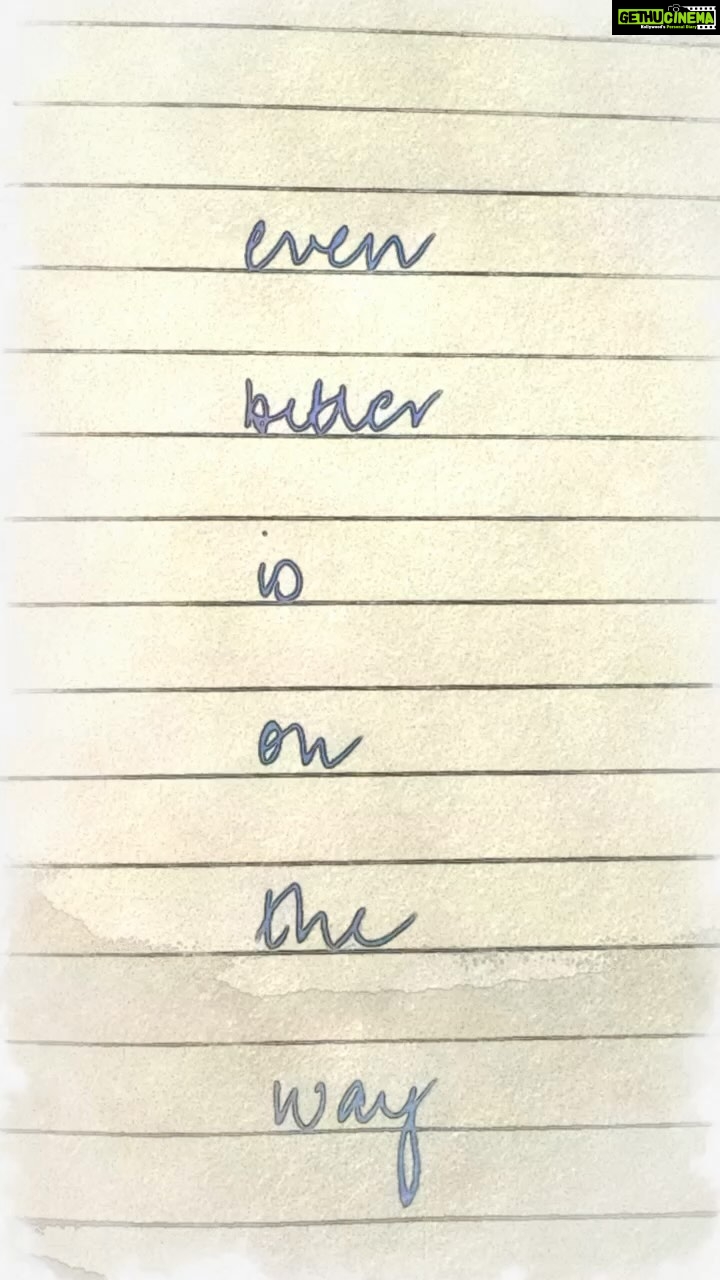 GETHUCINEMA
Kollywood's Personal Diary
even
better
is
on
the
way